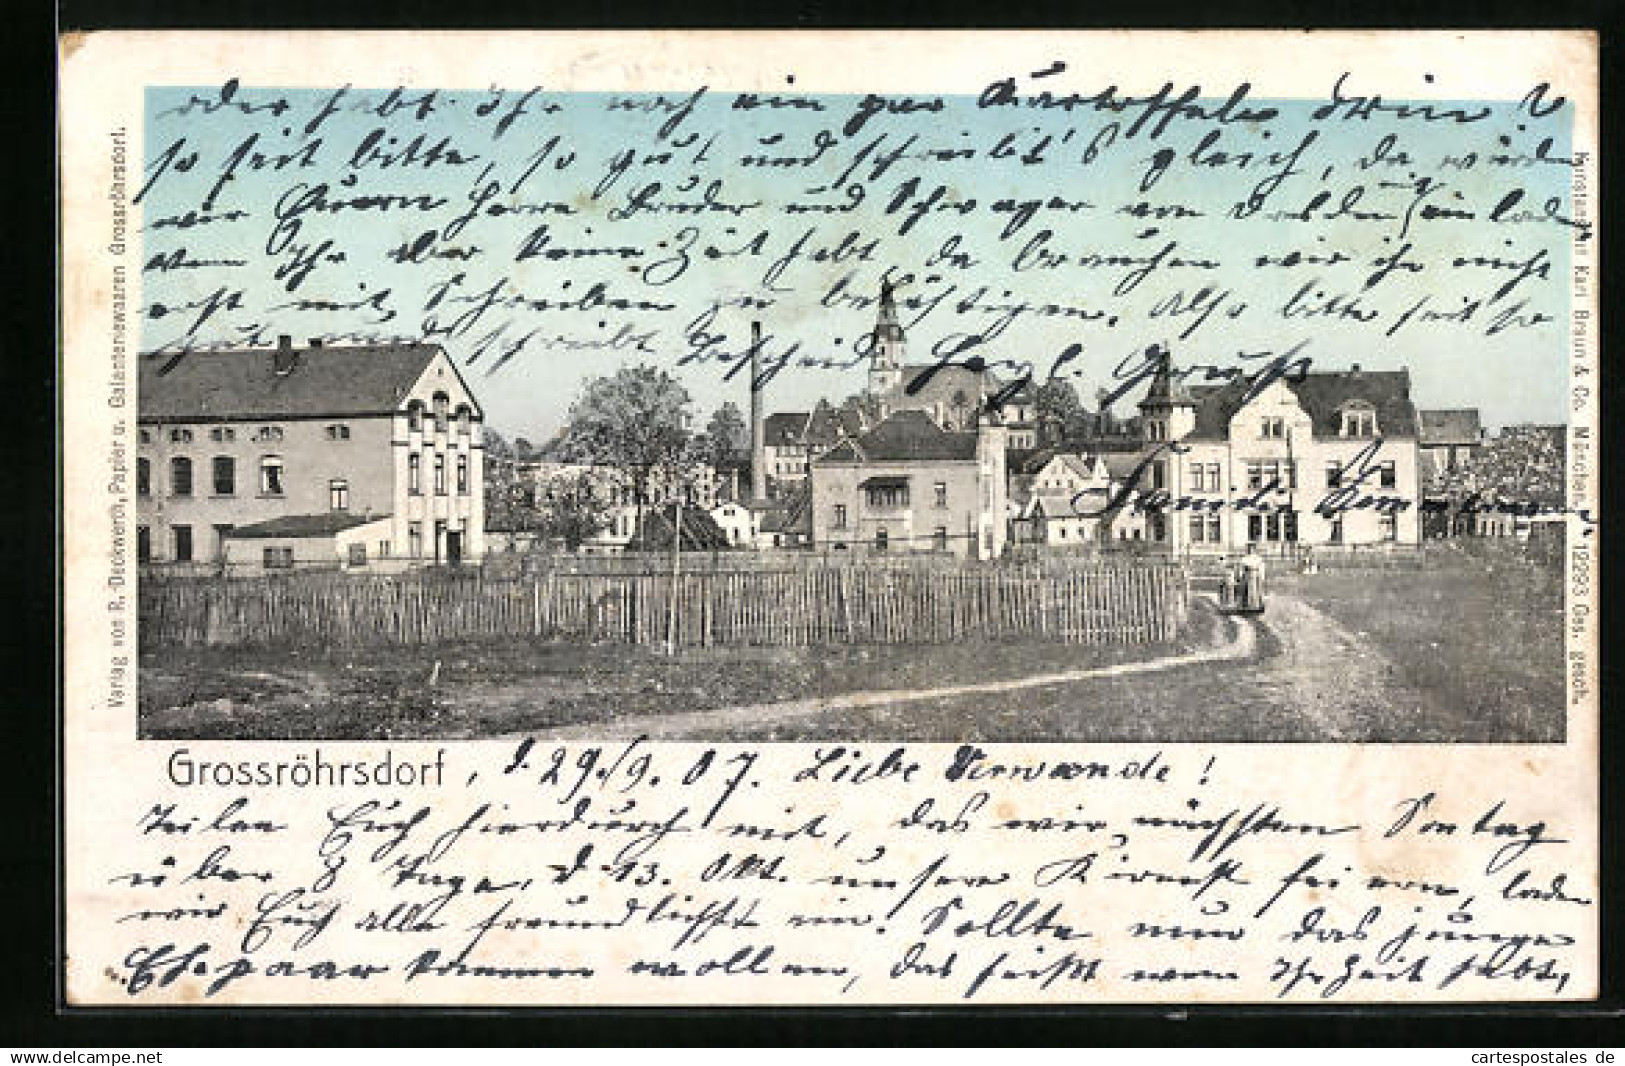 oder habt Ihr noch ein par Kartoffeln drin
so seit bitte, so gut und schreibt's gleich, da würden
wir Euern Herrn Bruder und Schwager von Dresden einladen
Wenn Ihr aber keine Zeit habt, da brauchen wir ihn nicht
erst mit Schreiben zu belästigen. Also bitte seit so
gut und schreibt Bescheid Herzl. Gruß
Familie
Grossröhrsdorf, d. 29./9. 07. Liebe Verwande!
Teilen Euch hierdurch mit, das wir nächsten Sontag
über 8 Tage, d. 13. Okt. unsere Kirmest feiern, laden
wir Euch alle freundlichst ein. Sollte nun das junge
Ehepaar kommen wollen, das heißt wenn Ihr Zeit habt,
Verlag von R. Deckwerth, Papier u. Galanteriewaaren Grossröhrsdorf.
Kunstanstalt Karl Braun & Co. München. 12293 Ges. gesch.
www.delcampe.net
cartespostales de